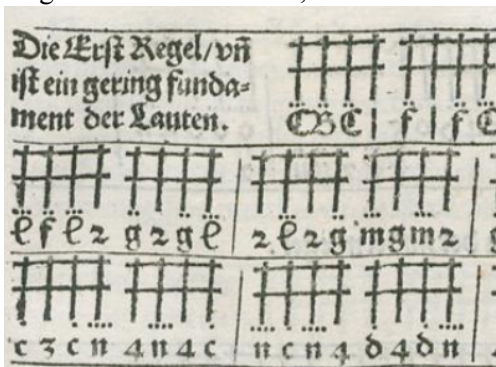 Die Erst Regel/ vñ
ist ein gering funda-
ment der Lauten.
C B C | f | f C
l f l 2 g 2 g l | 2 l 2 g m g m 2
c 3 c n 4 n 4 c | n c n 4 d 4 d n